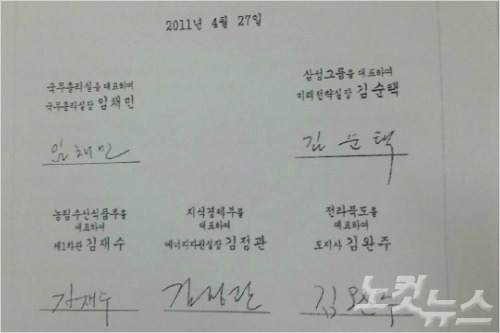 2011년 4월 27일
국무총리실을 대표하여
국무총리실장 임채민
임채민
삼성그룹을 대표하여
미래전략실장 김순택
김순택
농림수산식품부를
대표하여
제1차관 김재수
김재수
지식경제부를
대표하여
에너지자원실장 김정관
김정관
전라북도를
대표하여
도지사 김완주
김완주
노컷뉴스